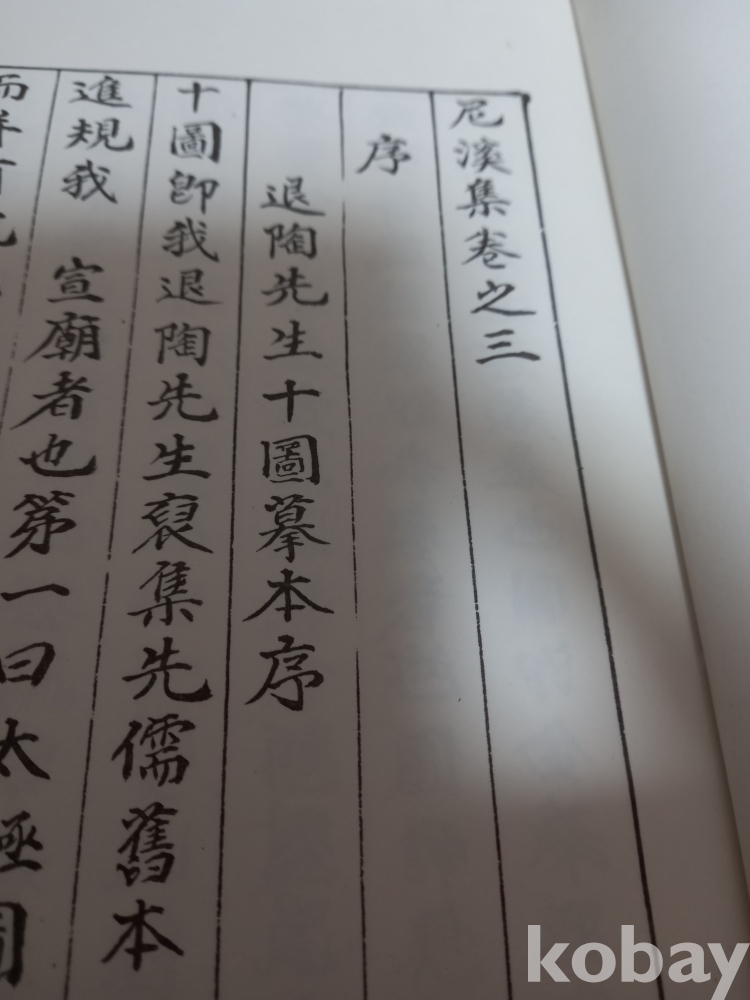 尼溪集卷之三
序
退陶先生十圖摹本序
十圖卽我退陶先生裒集先儒舊本
進規我 宣廟者也第一曰太極圖
kobay